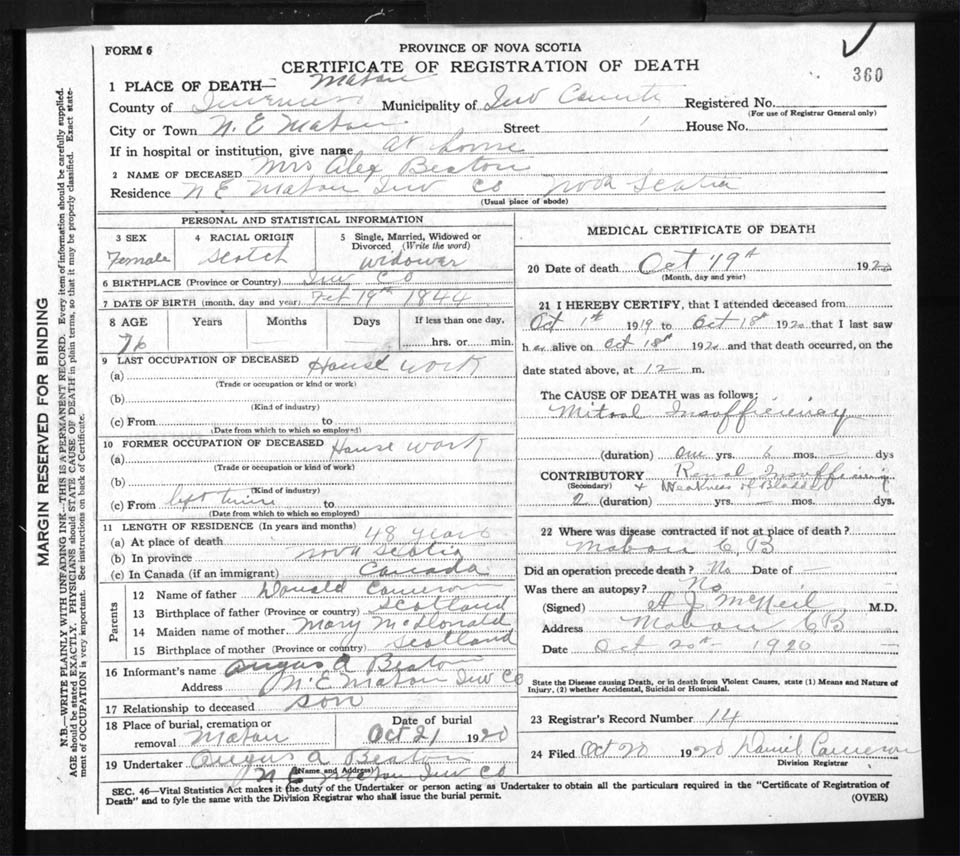 FORM 6
PROVINCE OF NOVA SCOTIA
CERTIFICATE OF REGISTRATION OF DEATH
360
1 PLACE OF DEATH— Mabou
County of Inverness Municipality of Inv County Registered No.
(For use of Registrar General only)
City or Town N. E Mabou Street House No.
If in hospital or institution, give name at home
2 NAME OF DECEASED Mrs Alex Beaton
Residence N E Mabou Inv Co Nova Scotia
(Usual place of abode)
PERSONAL AND STATISTICAL INFORMATION
3 SEX
Female
4 RACIAL ORIGIN
Scotch
5 Single, Married, Widowed or Divorced (Write the word)
widower
6 BIRTHPLACE (Province or Country) Inv Co
7 DATE OF BIRTH (month, day and year) Feb 19th 1844
8 AGE Years Months Days If less than one day,
76 hrs. or min.
9 LAST OCCUPATION OF DECEASED House work
(a)
(Trade or occupation or kind or work)
(b)
(Kind of industry)
(c) From to
(Date from which to which so employed)
10 FORMER OCCUPATION OF DECEASED House work
(a)
(Trade or occupation or kind of work)
(b)
(Kind of industry)
(c) From to
(Date from which to which so employed)
11 LENGTH OF RESIDENCE (In years and months)
(a) At place of death 48 years
(b) In province Nova Scotia
(c) In Canada (if an immigrant) Canada
Parents
12 Name of father Donald Cameron
13 Birthplace of father (Province or country) Scotland
14 Maiden name of mother Mary McDonald
15 Birthplace of mother (Province or country) Scotland
16 Informant's name Angus A Beaton
Address N. E Mabou Inv Co
17 Relationship to deceased son
18 Place of burial, cremation or removal Mabou
Date of burial
Oct 21 1920
19 Undertaker Angus A Beaton
(Name and Address)
N E Mabou Inv Co
MEDICAL CERTIFICATE OF DEATH
20 Date of death Oct 19th 1920
(Month, day and year)
21 I HEREBY CERTIFY, that I attended deceased from
Oct 1st 1919 to Oct 18th 1920 that I last saw
her alive on Oct 18th 1920 and that death occurred, on the
date stated above, at 12 m.
The CAUSE OF DEATH was as follows:
Mitral Insufficiency
(duration) one yrs. 6 mos. — dys
CONTRIBUTORY Renal Insufficiency
(Secondary) + Weakness of Bladder
2 (duration) yrs. — mos. dys.
22 Where was disease contracted if not at place of death?
Mabou C. B
Did an operation precede death? No Date of —
Was there an autopsy? No
(Signed) A J McNeil M.D.
Address Mabou CB
Date Oct 20th 1920
State the Disease causing Death, or in death from Violent Causes, state (1) Means and Nature of
Injury, (2) whether Accidental, Suicidal or Homicidal.
23 Registrar's Record Number 14
24 Filed Oct 20 1920 Daniel Cameron
Division Registrar
SEC. 46—Vital Statistics Act makes it the duty of the Undertaker or person acting as Undertaker to obtain all the particulars required in the "Certificate of Registration of
Death" and to fyle the same with the Division Registrar who shall issue the burial permit.
(OVER)
MARGIN RESERVED FOR BINDING
N.B.—WRITE PLAINLY WITH UNFADING INK—THIS IS A PERMANENT RECORD. Every item of information should be carefully supplied.
AGE should be stated EXACTLY. PHYSICIANS should STATE CAUSE OF DEATH in plain terms, so that it may be properly classified. Exact state-
ment of OCCUPATION is very important. See instructions on back of Certificate.